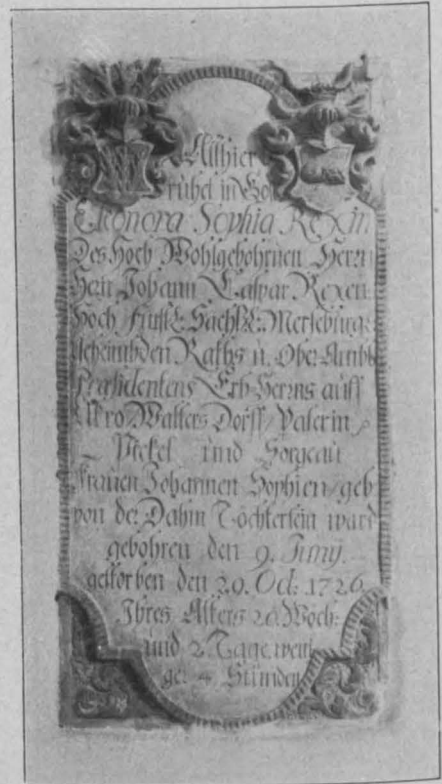 Allhier
ruhet in Got
Eleonora Sophia Rexin
Des Hoch Wohlgebohrnen Herrn
Herr Johann Caspar Rexen
Hoch Fürstl. Sächß. Merseburg:
Geheimbden Raths u. Ober Ambts
Præsidentens Erb Herrns auff
Walters Dorff /
Pickel und Sorgeau
Frauen Johannen Sophien / geb
von der Dahm Töchterlein ward
gebohren den 9. Junÿ.
gestorben den 29. Oct: 1726
Ihres Alters 20. Woch:
und 2. Tage, weni
ger 4 Stunden